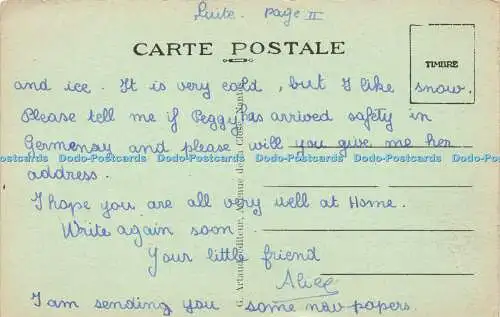 Suite. page II
CARTE POSTALE
TIMBRE
and ice. It is very cold, but I like snow.
Please tell me if Peggy has arrived safety in
Germensay and please will you give me her
address.
I hope you are all very well at Home.
Write again soon
Your little friend
I am sending you some now papers.
G. Artaud, éditeur, Avenue de la Close, Nantes
Dodo-Postcards Dodo-Postcards Dodo-Postcards Dodo-Postcards Dodo-Postcards